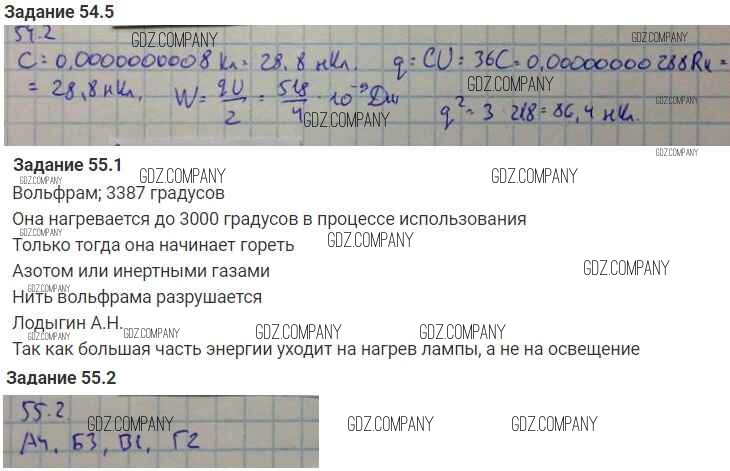 Задание 54.5
54.2
GDZ.COMPANY GDZ.COMPANY
C = 0,0000000008 Кл = 28,8 нКл. q = CU = 36C = 0,00000000288 Кл =
= 28,8 нКл, W = qU/2 = 518/4 · 10⁻⁹ Дж
GDZ.COMPANY
GDZ.COMPANY
q² = 3 · 218 = 86,4 нКл.
GDZ.COMPANY
Задание 55.1
GDZ.COMPANY GDZ.COMPANY GDZ.COMPANY GDZ.COMPANY
Вольфрам; 3387 градусов
Она нагревается до 3000 градусов в процессе использования
GDZ.COMPANY
Только тогда она начинает гореть
GDZ.COMPANY
Азотом или инертными газами
GDZ.COMPANY
GDZ.COMPANY
Нить вольфрама разрушается
Лодыгин А.Н.
GDZ.COMPANY GDZ.COMPANY GDZ.COMPANY GDZ.COMPANY
Так как большая часть энергии уходит на нагрев лампы, а не на освещение
Задание 55.2
55.2.
GDZ.COMPANY GDZ.COMPANY GDZ.COMPANY
А4, Б3, В1, Г2